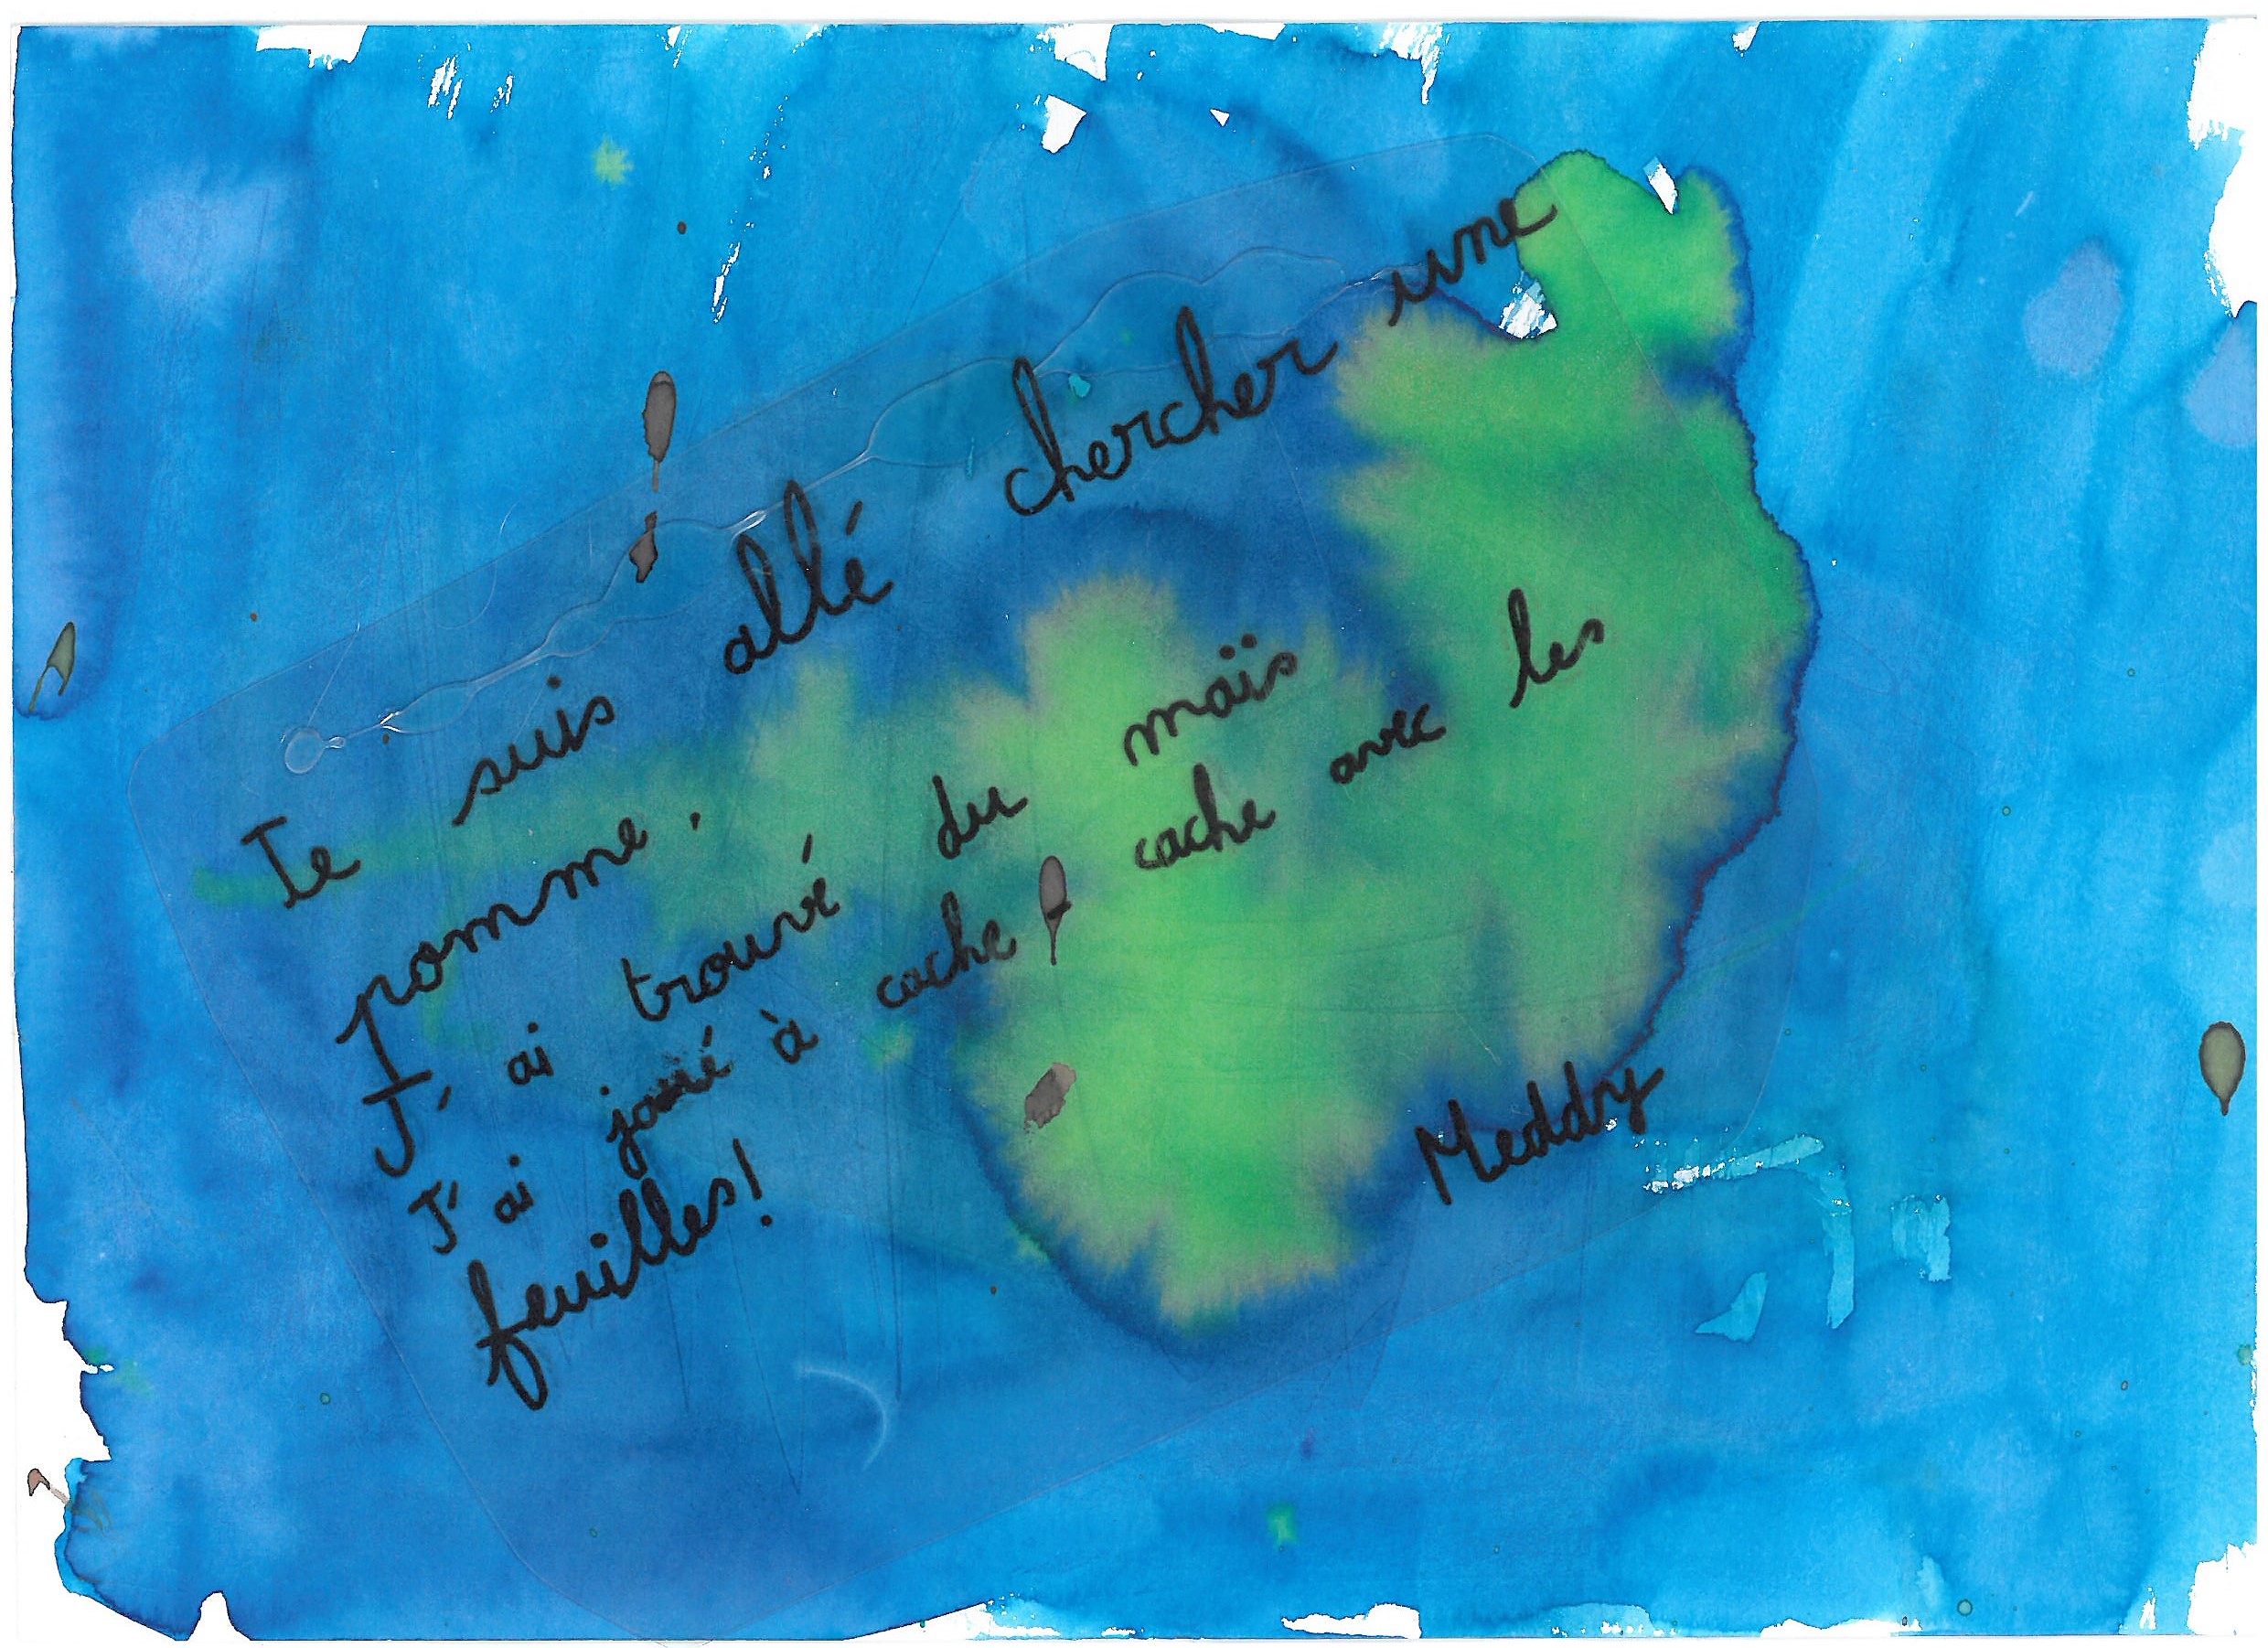 Je suis allé chercher une
pomme.
J'ai trouvé du maïs
J'ai joué à cache cache avec les
feuilles!
Meddy